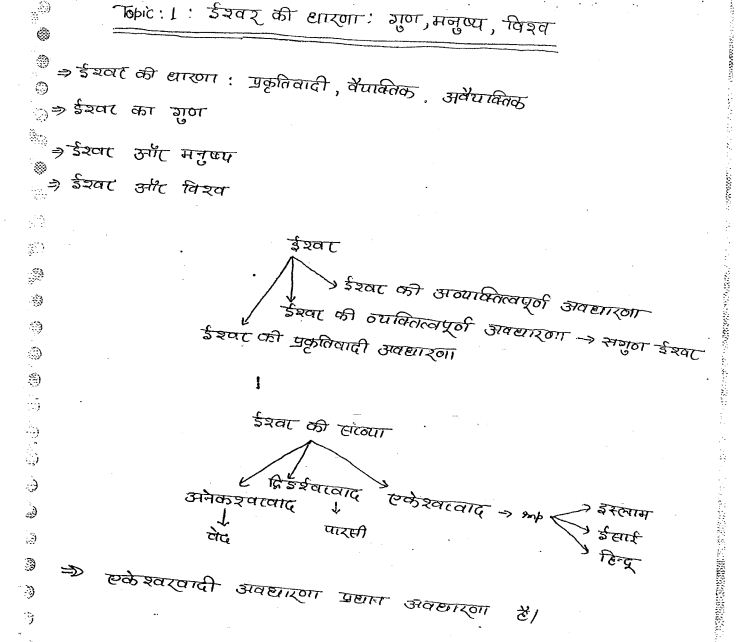 Topic: 1 : ईश्वर की धारणा : गुण, मनुष्य, विश्व
⇒ ईश्वर की धारणा : प्रकृतिवादी, वैयक्तिक, अवैयक्तिक
⇒ ईश्वर का गुण
⇒ ईश्वर और मनुष्य
⇒ ईश्वर और विश्व
ईश्वर
ईश्वर की अव्यक्तित्वपूर्ण अवधारणा
ईश्वर की व्यक्तित्वपूर्ण अवधारणा → सगुण ईश्वर
ईश्वर की प्रकृतिवादी अवधारणा
ईश्वर की संख्या
अनेकश्वरवाद द्विईश्वरवाद एकेश्वरवाद → imp → इस्लाम
वेद पारसी ईसाई
हिन्दू
⇒ एकेश्वरवादी अवधारणा प्रधान अवधारणा है।